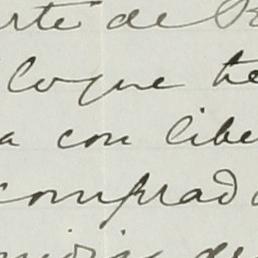 rte de R
lo que te
a con libe
comprad